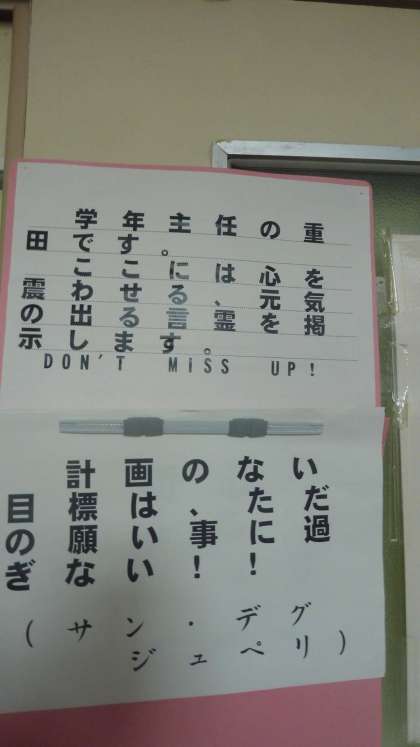 学年主任の重
田です。
ここには、心を
震わせる、元気
の出る言霊を掲
示します。
DON'T MiSS UP!
計画のない
目標は、ただ
の願い事に過
ぎない！！
(サン・デグ
ジェペリ)